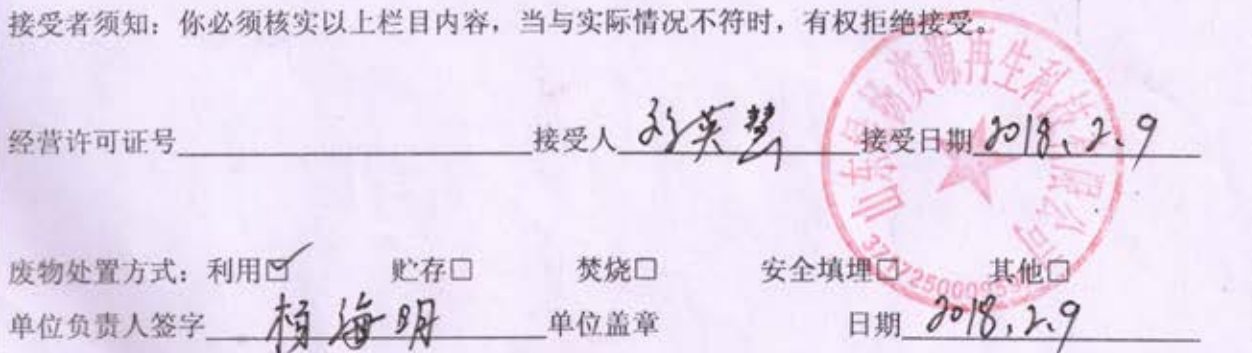 接受者须知：你必须核实以上栏目内容，当与实际情况不符时，有权拒绝接受。
经营许可证号 接受人 英慧 接受日期 2018.2.9
废物处置方式：利用☑ 贮存□ 焚烧□ 安全填埋□ 其他□
单位负责人签字 杨海明 单位盖章 日期 2018.2.9
山东 扬资源再生科技有限公司